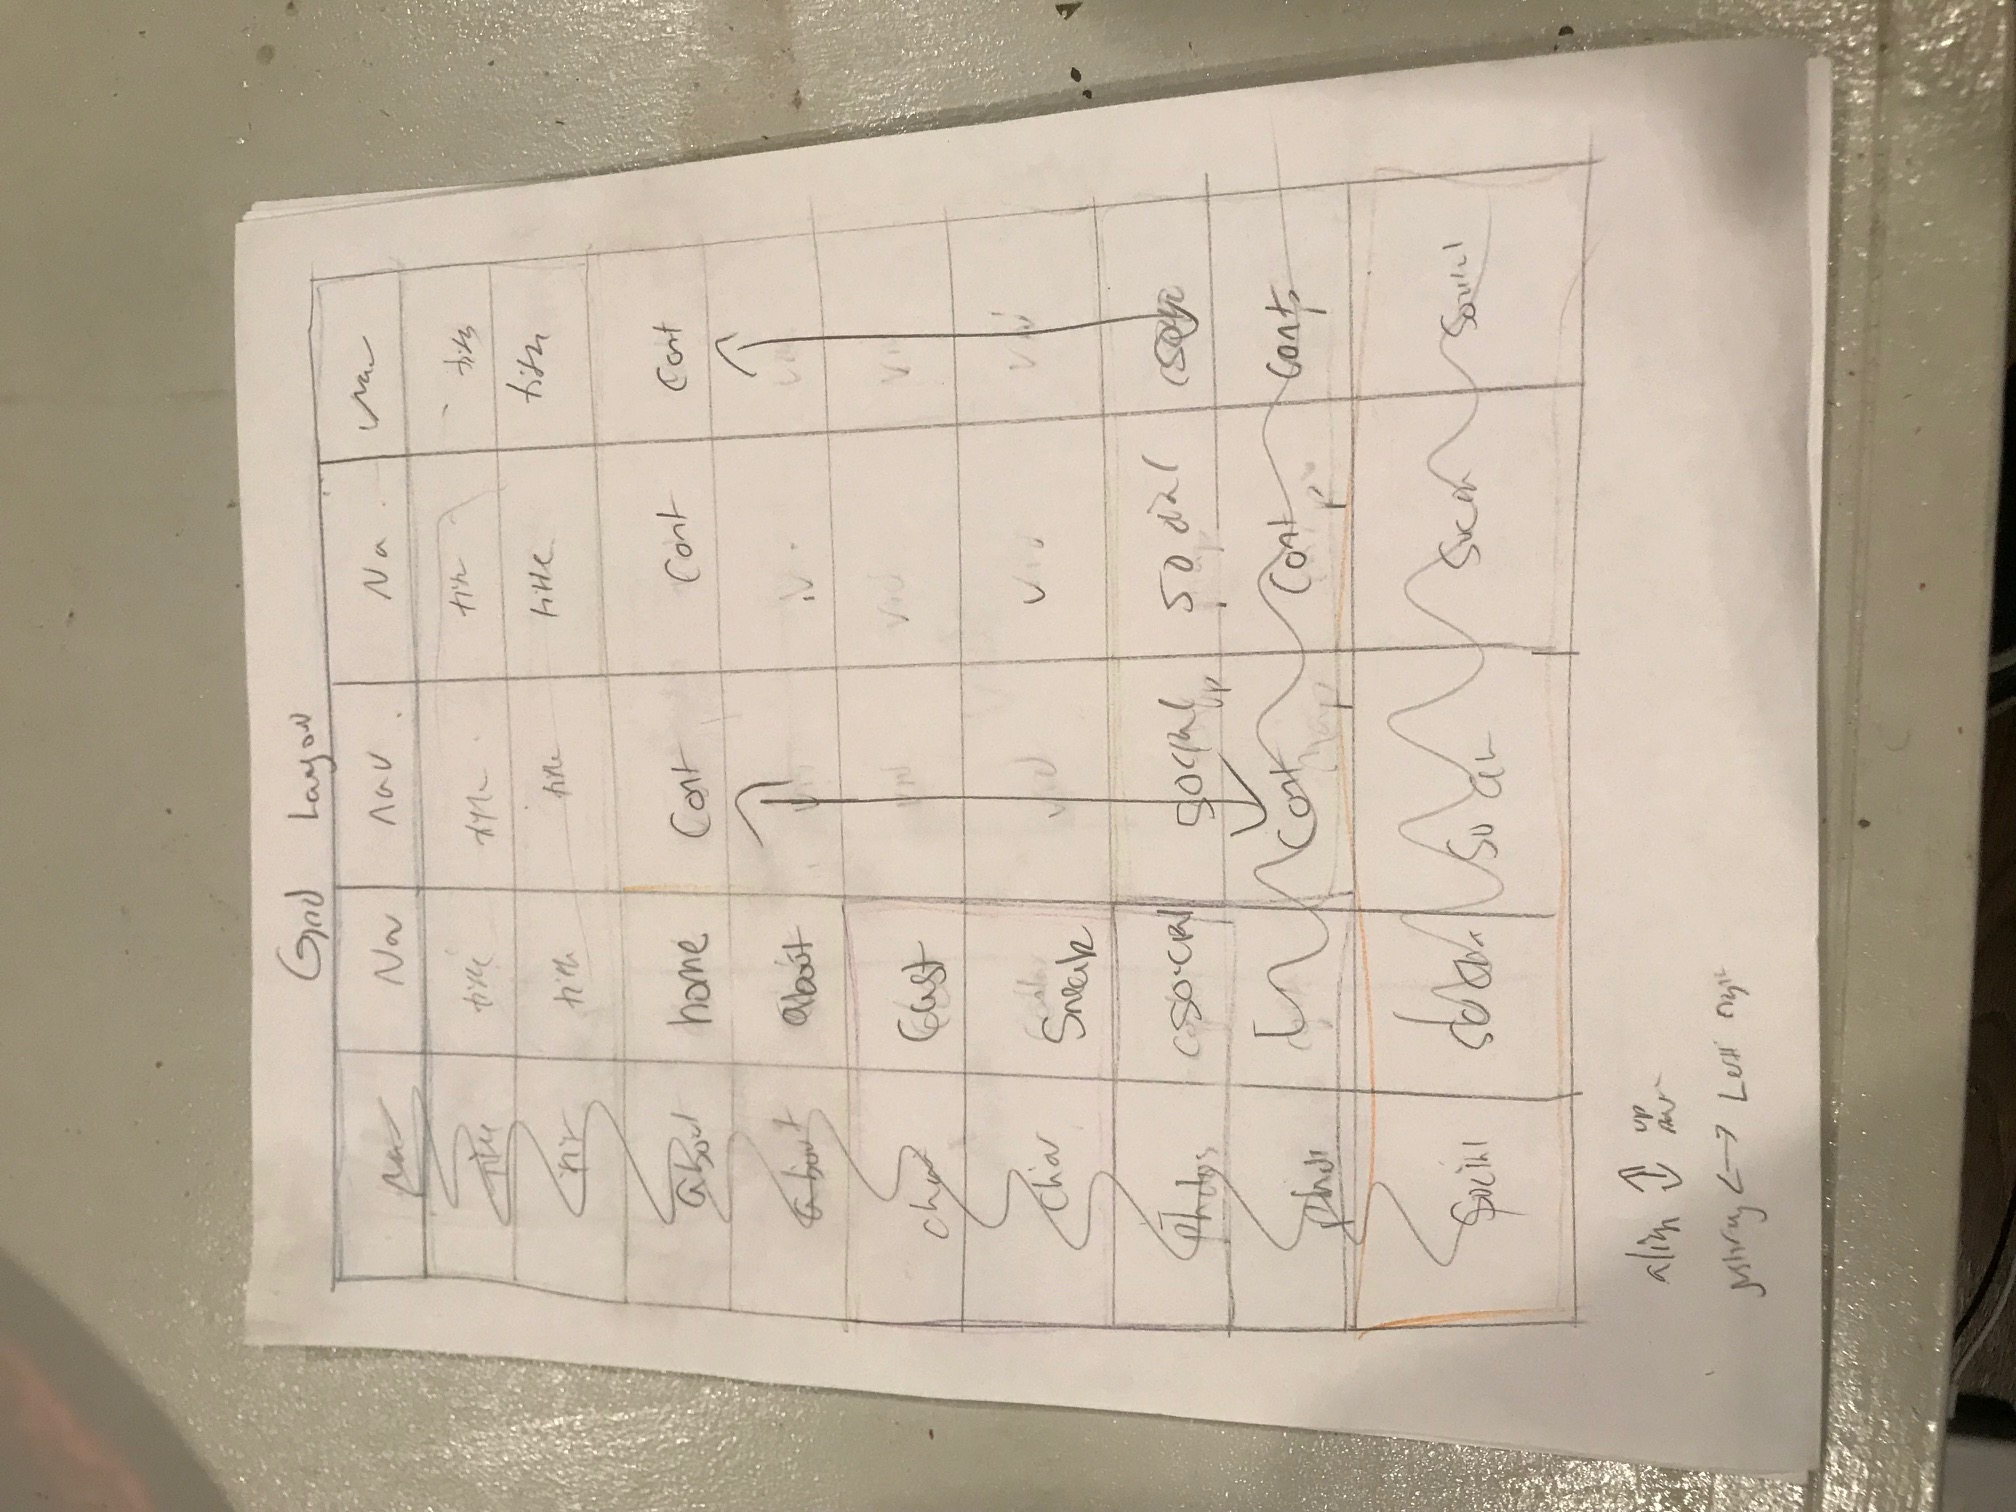 Grid Layou
Nav Nav nav Na Nav
title title title titl title
title title title title
about home Cont Cont Cont
about about vid V
char Cast vid vid vid
char Sneak vid vid vid
Photos social social social
up up
phot Cont Cont Cont
Social Social Social Social
align ↑↓ up
justify <-> Left right